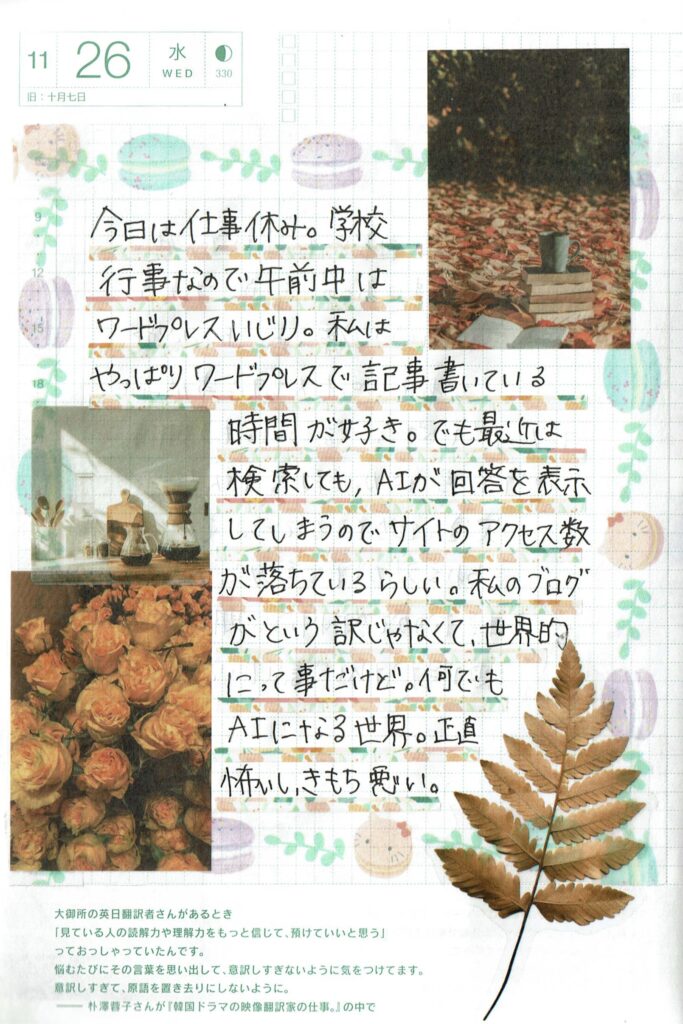 11
26
水
WED
330
旧：十月七日
9
12
15
18
今日は仕事休み。学校
行事なので午前中は
ワードプレスいじり。私は
やっぱりワードプレスで記事書いている
時間が好き。でも最近は
検索しても,AIが回答を表示
してしまうのでサイトのアクセス数
が落ちているらしい。私のブログ
がという訳じゃなくて,世界的
にって事だけど。何でも
AIになる世界。正直
怖いし,きもち悪い。
大御所の英日翻訳者さんがあるとき
「見ている人の読解力や理解力をもっと信じて、預けていいと思う」
っておっしゃっていたんです。
悩むたびにその言葉を思い出して、意訳しすぎないように気をつけてます。
意訳しすぎて、原語を置き去りにしないように。
―― 朴澤蓉子さんが『韓国ドラマの映像翻訳家の仕事。』の中で